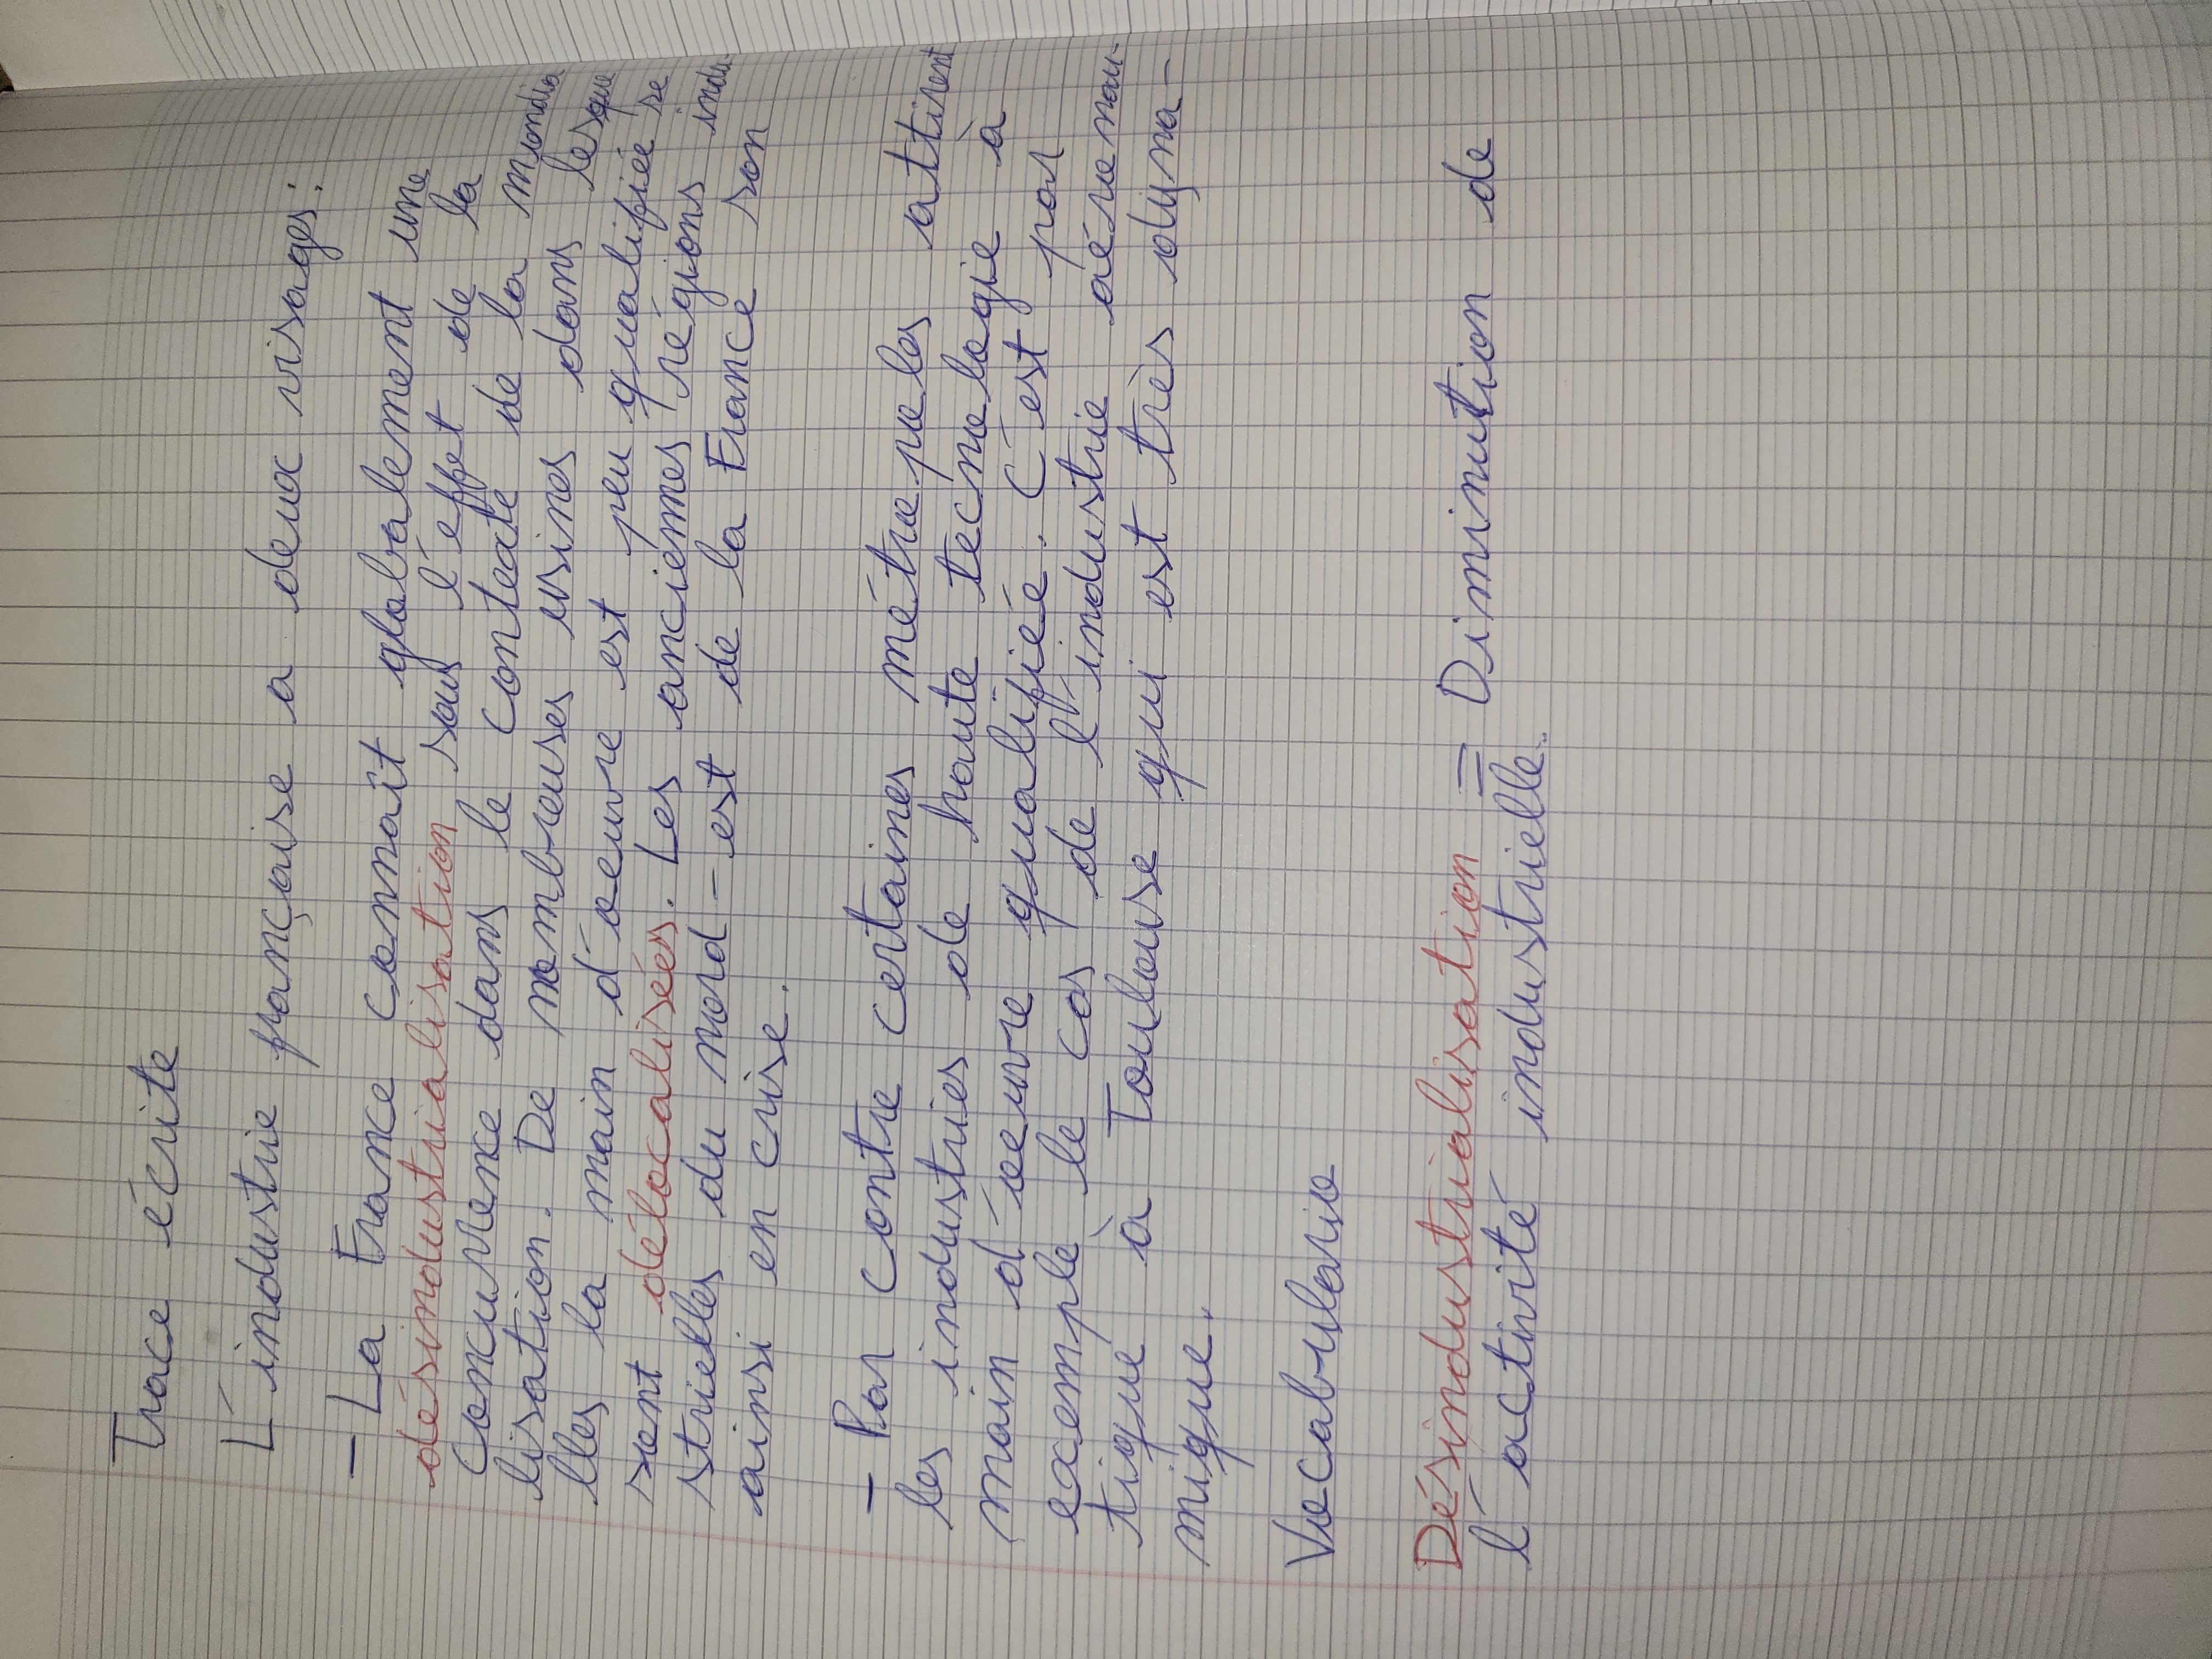 Trace écrite
L'industrie française a deux visages :
- La France connaît globalement une
désindustrialisation sous l'effet de la
concurrence dans le contexte de la mondia
lisation. De nombreuses usines dans lesque
lles la main d'oeuvre est peu qualifiée se
sont délocalisées. Les anciemes régions indu
strielles du nord-est de la France son
ainsi en crise.
- Par contre certaines métropoles attirent
les industries de haute tecnologie à
main d'oeuvre qualifiée. C'est par
exemple le cas de l'industrie aéronau-
tique à Toulouse qui est très dyna-
mique.
Vocabulario
Désindustrialisation = Diminution de
l'activité industrielle.